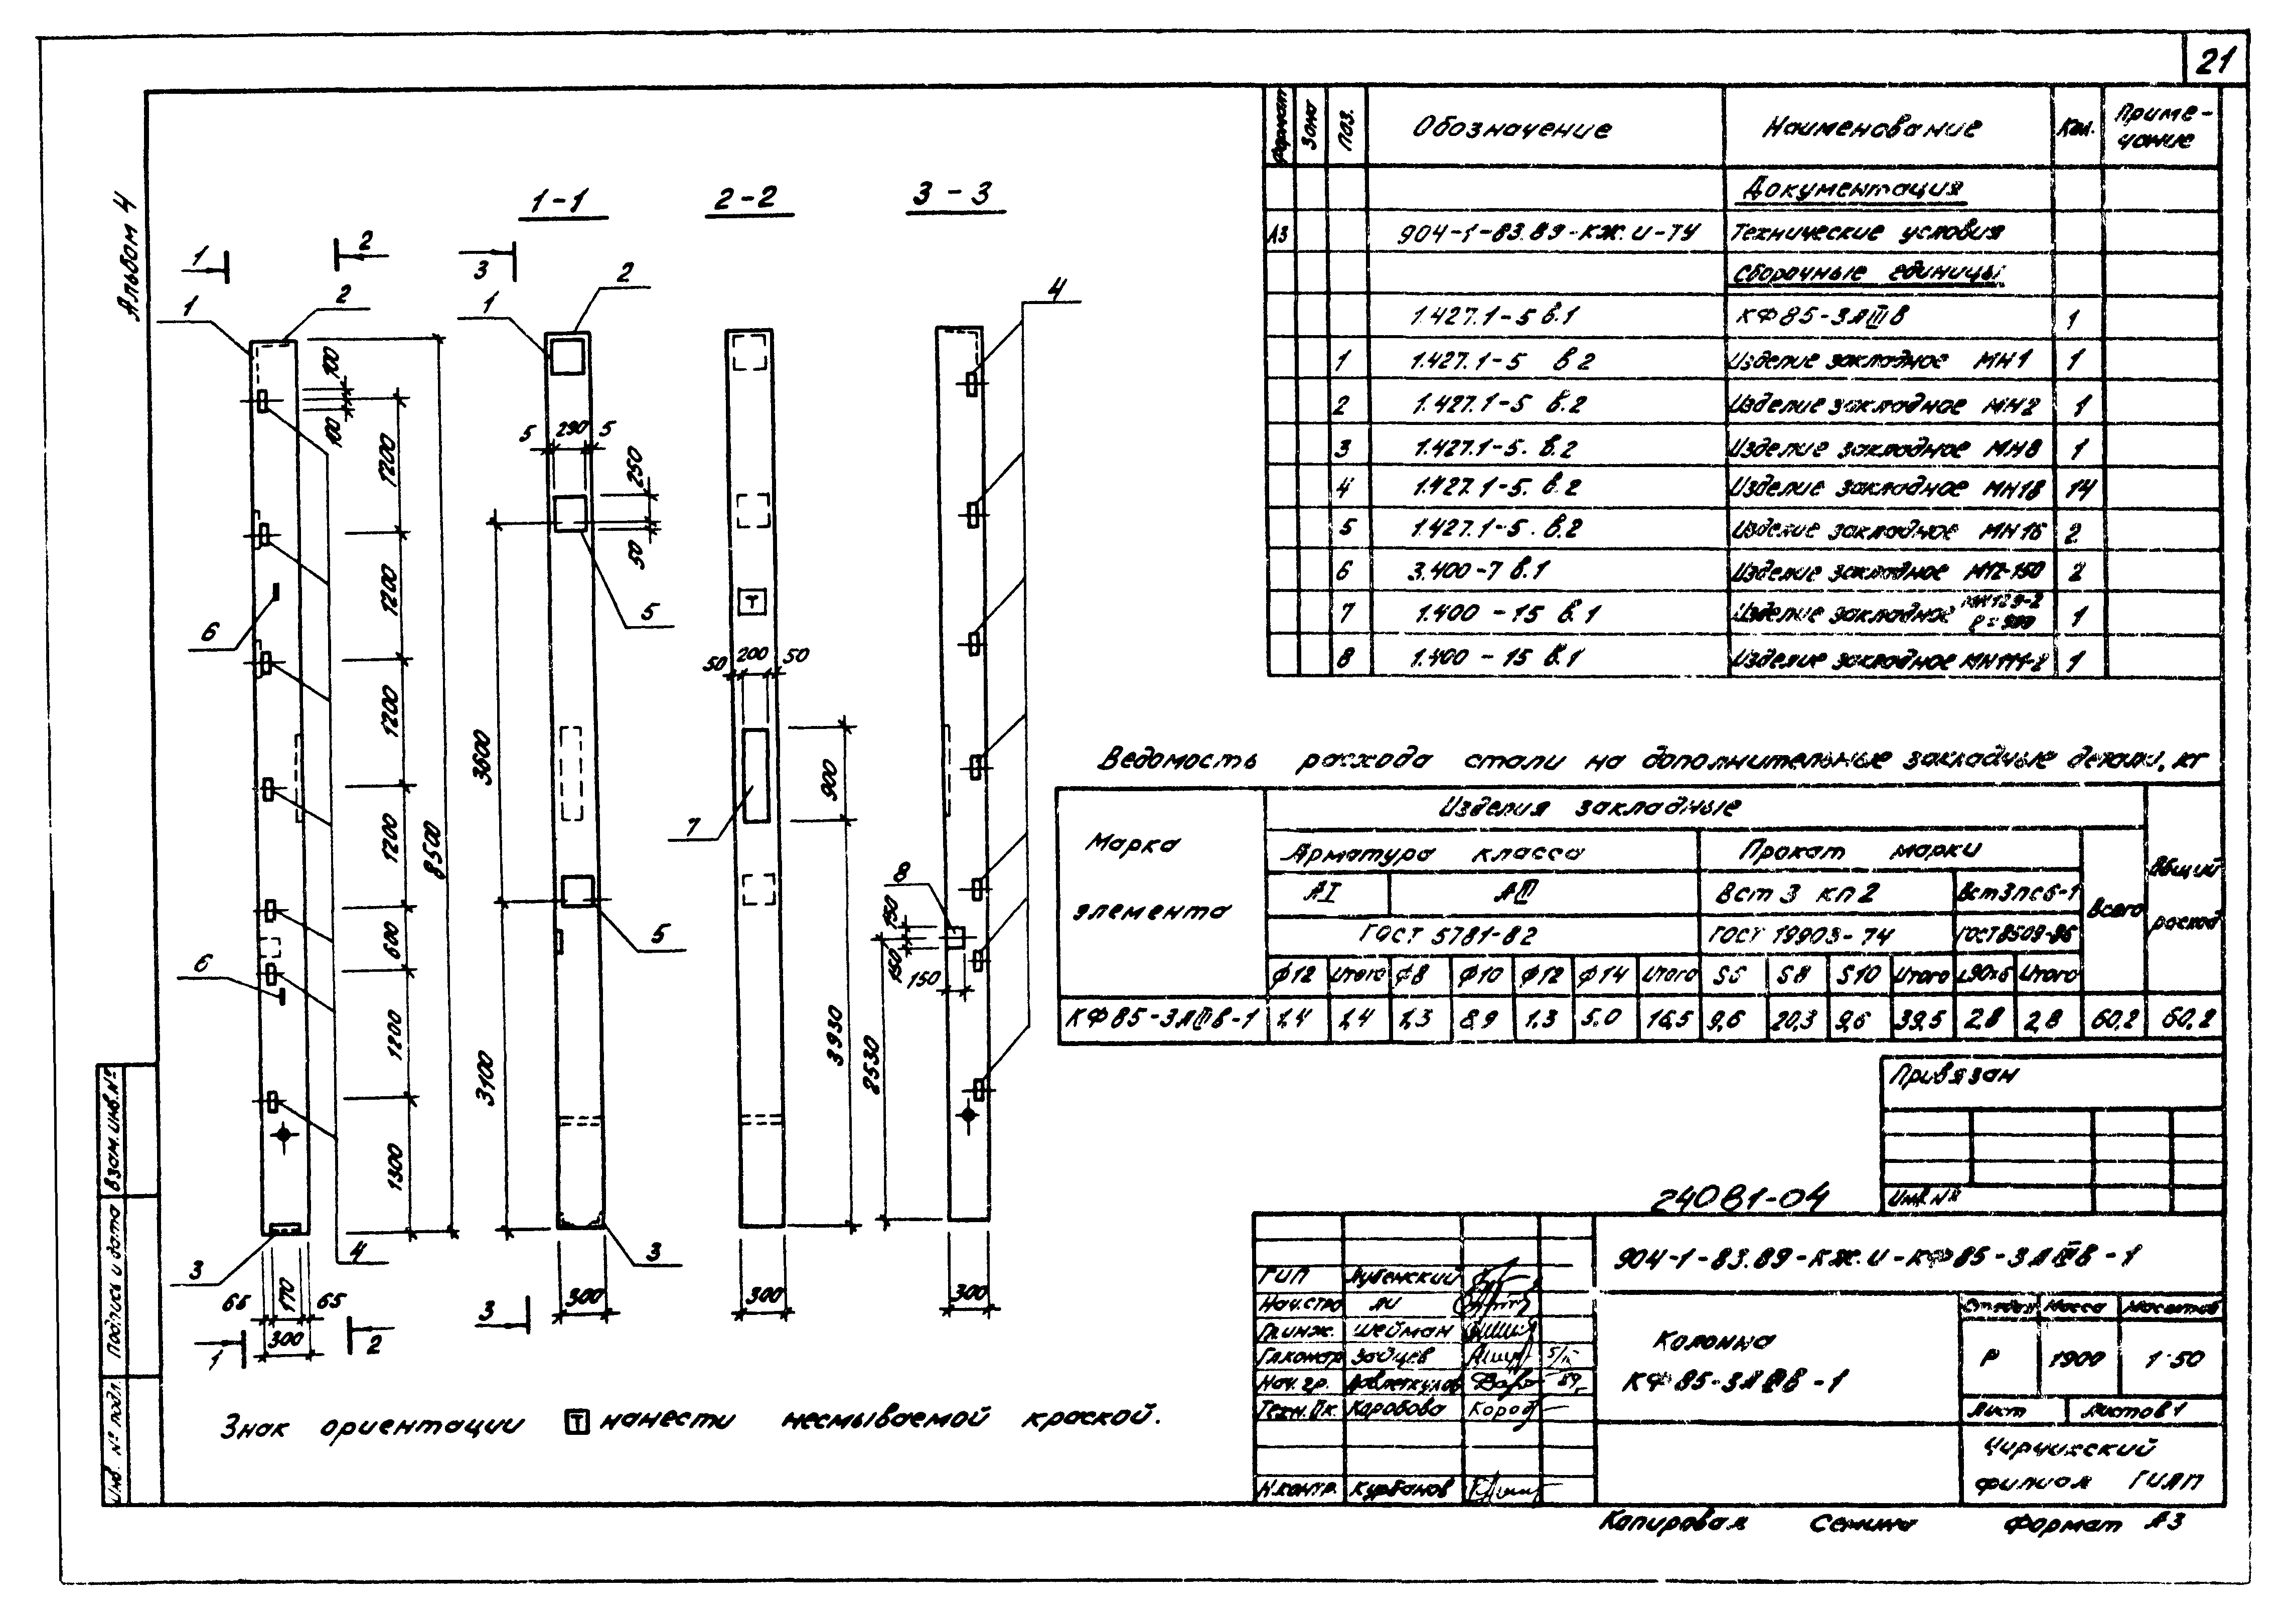 21
Альбом 4
1-1
2-2
3 - 3
1
2
3
1
2
1
2
4
100
100
1200
1200
1200
1200
600
1200
1300
8500
6
6
3
4
65
170
65
300
1
2
5
290
5
250
50
5
3600
5
3100
3
300
3
50
200
50
7
900
3930
300
8
150
150
150
2530
300
Знак ориентации Т нанести несмываемой краской.
Формат
Зона
Поз.
Обозначение
Наименование
Кол.
Приме-
чание
Документация
А3 904-1-83.89-КЖ.И-ТУ Технические условия
Сборочные единицы
1.427.1-5 в.1 КФ85-3АIIIв 1
1 1.427.1-5 в2 Изделие закладное МН1 1
2 1.427.1-5 в.2 Изделие закладное МН2 1
3 1.427.1-5. в.2 Изделие закладное МН8 1
4 1.427.1-5. в.2 Изделие закладное МН18 14
5 1.427.1-5. в.2 Изделие закладное МН16 2
6 3.400-7 в.1 Изделие закладное 2
7 1.400 - 15 в.1 Изделие закладное 1
8 1.400 - 15 в.1 Изделие закладное МН111-2 1
Ведомость расхода стали на дополнительные закладные детали, кг
Марка
элемента
Изделия закладные
Арматура класса
Прокат марки
Всего
Общий
расход
АI
АIII
Вст 3 кп 2
Вст3пс6-1
ГОСТ 5781-82
ГОСТ 19903-74
ГОСТ 8509-86
ф12 Итого ф8 ф10 ф12 ф14 Итого S6 S8 S10 Итого L90х6 Итого
КФ85-3АIIIв-1 1,4 1,4 1,3 8,9 1,3 5,0 16,5 9,6 20,3 9,6 39,5 2,8 2,8 60,2 60,2
Привязан
Инв. №
24081-04
904-1-83.89-КЖ.И-КФ85-3АIIIв-1
ГИП Лубенский
Нач.стро Ли
Гл.инж. Шейман
Гл.констр Зайцев
Нач. гр. Давлеткулов 89г
Техн. Iк Коробова
Н.контр. Курбанов
Колонна
КФ85-3АIIIв-1
Стадия Масса Масштаб
Р 1900 1:50
Лист Листов 1
Чирчикский
филиал ГИАП
Копировал Семина Формат А3
Взам. инв. №
Подпись и дата
Инв. № подл.